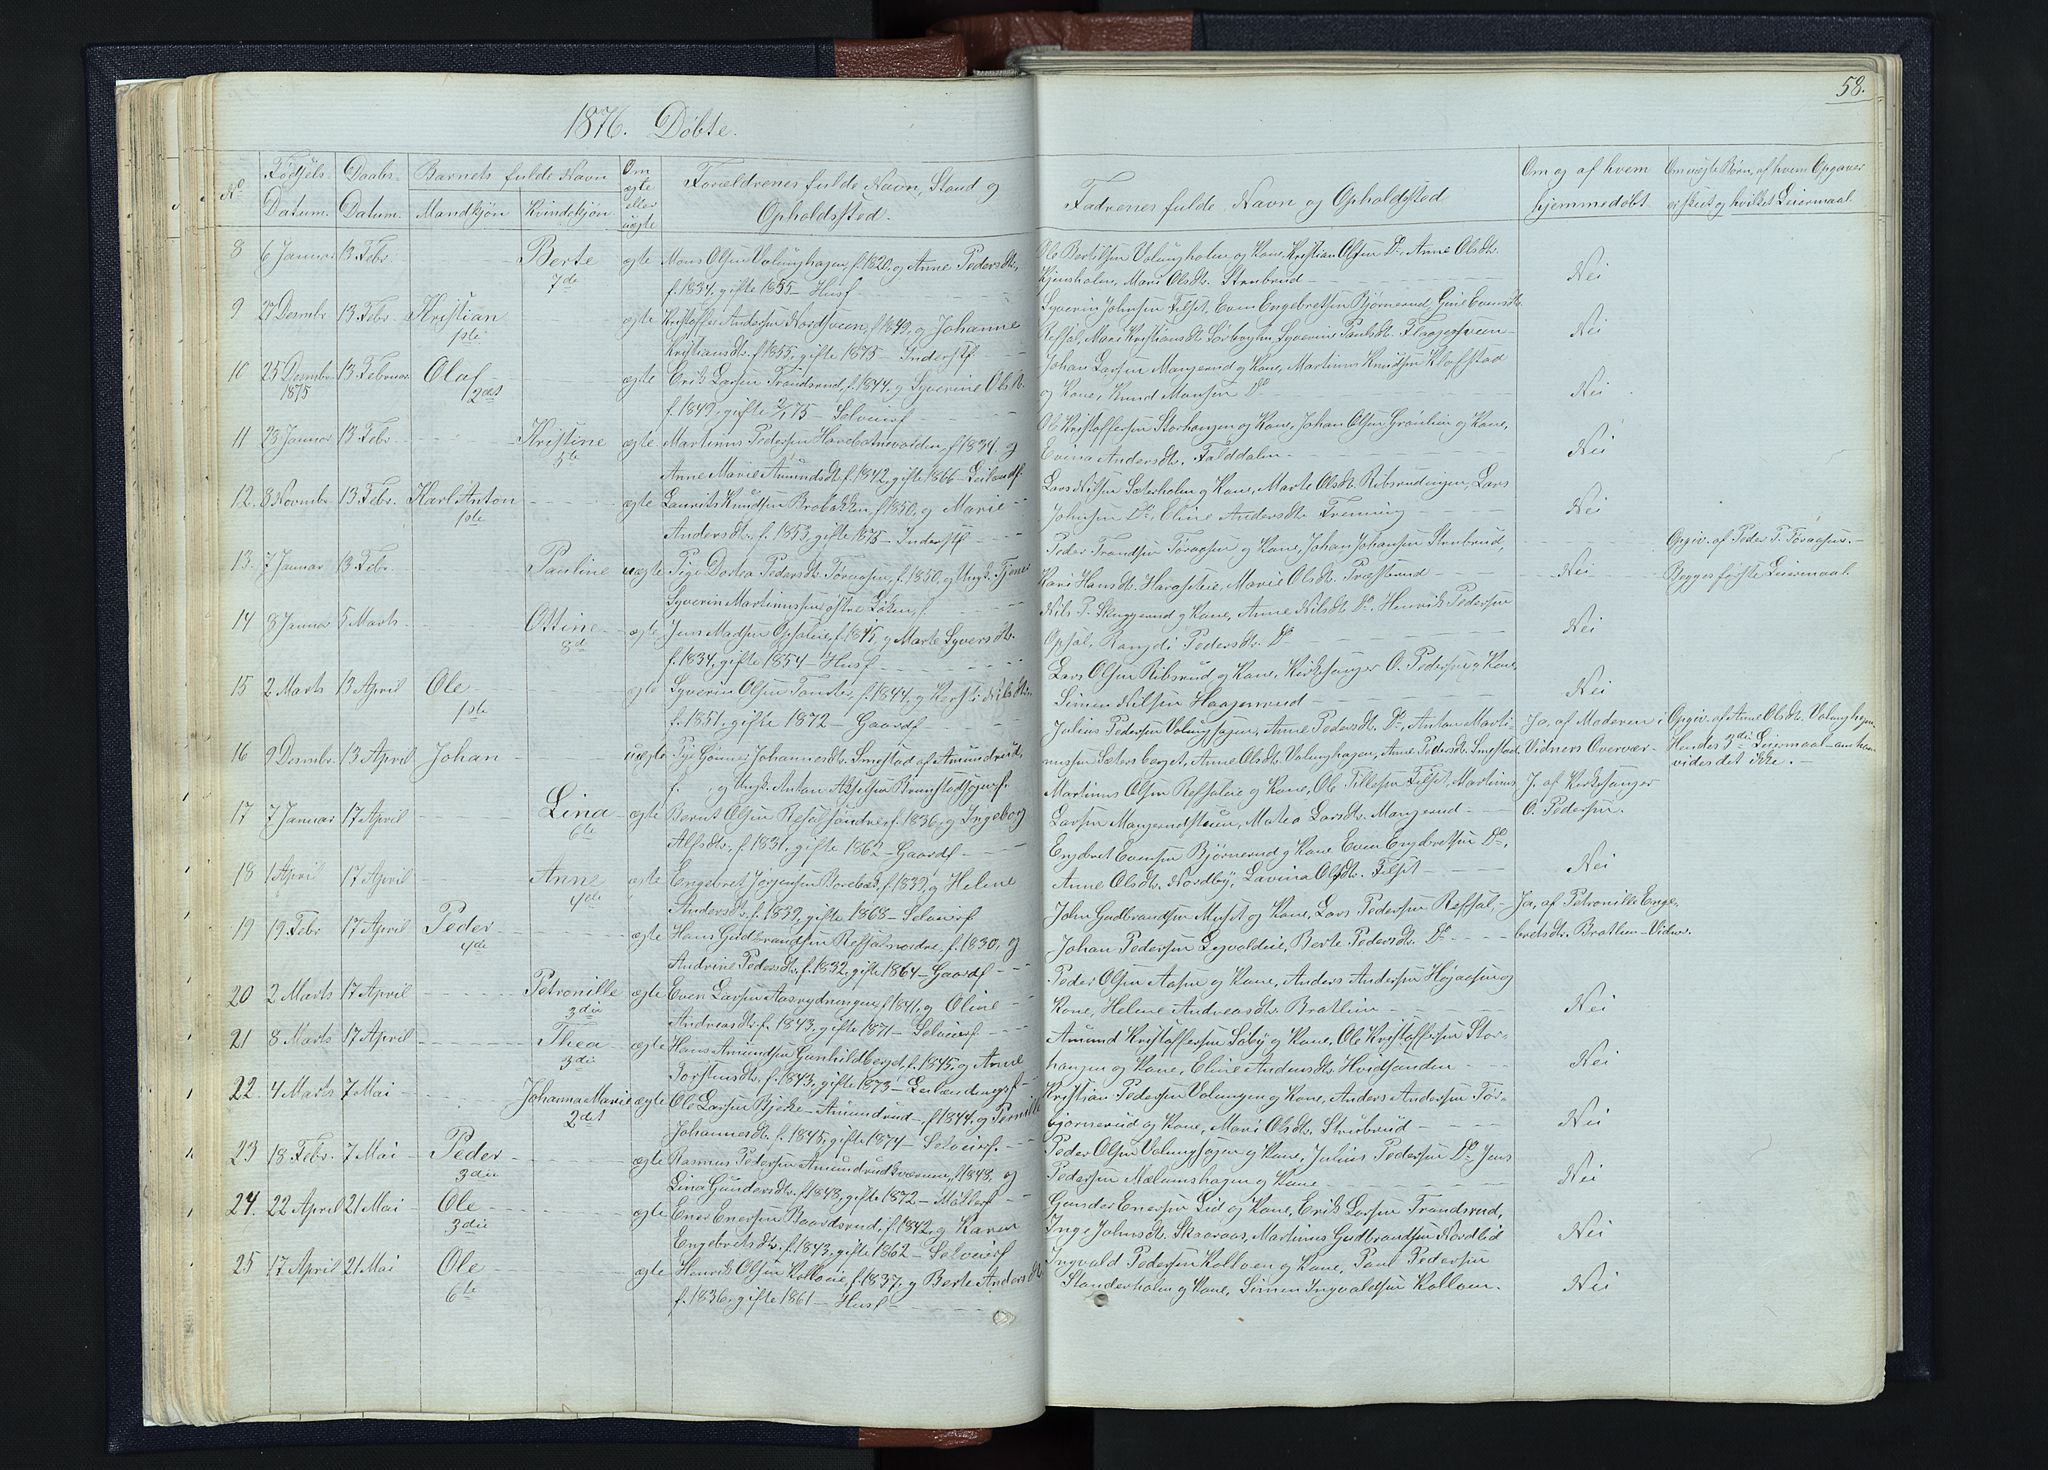 58.
1876. Döbte.
No
Födsels Datum.
Daabs Datum.
Barnets fulde Navn
Mandkjön
Kvindekjön
Om ægte eller uægte
Forældrenes fulde Navn, Stand og Opholdssted.
Fadrenes fulde Navn og Opholdsted
Om og af hvem hjemmedöbt
Om uægte Börn, af hvem Opgaven er skeet og hvilket Leiermaal
8 6 Januar 13 Febr. Berte 7de ægte Mons Olsen Volunghagen, f. 1820, og Anne Pedersdtr. Ole Bertilsen Volungholen og Kone, Kristian Olsen Do, Anne Olsdtr.
f. 1834, gifte 1855 - Husf. Mari Olsdtr. Stenbrud Nei
9 27 Desmbr 13 Febr. Kristian 1ste ægte Kristoffer Andersen Nordsveen, f. 1849, og Johanne Syverin Johnsen Filset, Even Engebretsen Björnerud, Gine Evensdtr.
Kristiansdtr. f. 1855, gifte 1875 - Inderstf. Refsal, Mari Kristiansdtr. Syverine Paulsdtr. Nei
10 25 Desmbr 1875 13 Februar Olaf 2det ægte Erik Larsen Trandsrud, f. 1844, og Syverine Olsdtr. Johan Larsen Mangerud og Kone, Martinus Knudsen Kloftstad
f. 1849, gifte 75 - Selveierf. og Kone, Knud Monsen Do Nei
11 23 Januar 13 Febr. Kristine 5te ægte Martinus Pedersen f. 1834, og Ole Kristoffersen Storhaugen og Kone, Johan Olsen Grönlien og Kone,
Anne Marie Amundsdtr. f. 1842, gifte 1866 - Leilændf. Evina Andersdtr. Falddalen Nei
12. 8 Novmbr 13 Febr. Karl Anton 1ste ægte Laurits Knudsen Brobakken, f. 1850, og Marie Lars Nilsen Sæterholen og Kone, Marte Olsdtr. Ribsrudengen, Lars
Andersdtr. f. 1853, gifte 1875 - Inderstf. Johnsen Do, Eline Andersdtr. Nei
13. 7 Januar 13 Febr. Pauline uægte Pige Dortea Pedersdtr. Töraasen, f. 1850, og Ungk. Tjener Peder Trandsen Töraasen og Kone, Johan Johansen Stenbrud, Opgiv. af Peder T. Töraasen.
Syverin Martinussen östre f. Kari Hansdtr. Marie Olsdtr. Præsterud Nei Begges förste Leiermaal.
14 8 Januar 5 Marts Ottine 8de ægte Jens Madsen Opsaleie, f. 1845, og Marte Syversdtr. Nils P. Skuggerud og Kone, Anne Nilsdtr. Do, Henrik Pedersen
f. 1834, gifte 1854 - Husf. Opsal, Randi Pedersdtr. Do Nei
15 2 Marts 13 April Ole 1ste ægte Syverin Olsen f. 1844, og Kersti Nilsdtr. Lars Olsen Ribsrud og Kone, Kirkesanger O. Pedersen og Kone,
f. 1851, gifte 1872 - Gaardf. Simen Nilsen Haagenrud Nei
16 9 Desmbr. 13 April Johan uægte Pige Gönner Johannesdtr. Smestad af Amundrud, Julius Pedersen Volunghagen, Anne Pedersdtr. Do, Anton Marti- Ja, af Moderen i Opgiv. af Anne Olsdtr. Volunghagen.
f. og Ungk. Anton Axelsen nussen Sætersberget, Anne Olsdtr. Volunghagen, Anne Pedersdtr. Smestad Vidners Overvær. Hendes 3die Leiermaal - om ham vides det ikke. -
17 7 Januar 17 April Lina 6te ægte Bernt Olsen Refsal söndre f. 1836, og Ingeborg Martinus Olsen Refsaleie og Kone, Ole Tillefsen Filset, Martinus J. af Kirkesanger
Alfsdtr. f. 1831, gifte 1862 - Gaardf. Larsen Mangerudstuen, Matea Larsdtr. Mangerud O. Pedersen.
18 1 April 17 April Anne 4de ægte Engebret Jörgensen Borebæk, f. 1839, og Helene Engebret Evensen Björnerud og Kone, Even Engebretsen Do,
Andersdtr. f. 1839, gifte 1868 - Selveierf. Anne Olsdtr. Nordby, Lavina Olsdtr. Filset Nei
19 19 Febr 17 April Peder 4de ægte Hans Gudbrandsen Refsal nordre, f. 1830, og John Gudbrandsen Muset og Kone, Lars Pedersen Refsal, Ja, af Petronille Enge-
Andrine Pedersdtr. f. 1832, gifte 1864 - Gaardf. Johan Pedersen Berte Pedersdtr. Do bretsdtr. Bratlien - Vidner.
20 2 Marts 17 April Petronille 3die ægte Even Larsen Aasrydningen, f. 1841, og Oline Peder Olsen Aasen og Kone, Anders Andersen Höjaasen og
Andreasdtr. f. 1843, gifte 1871 - Selveierf. Kone, Helene Andreasdtr. Bratlien Nei
21 8 Marts 17 April Thea 3die ægte Hans Amundsen Gunhildberget, f. 1845, og Anne Amund Kristoffersen Söby og Kone, Ole Kristoffersen Stor-
Torstensdtr. f. 1843, gifte 1873 - Leilændingsf. haugen og Kone, Eline Andersdtr. Hvidsanden Nei
22. 4 Marts 7 Mai Johanna Marie 2det ægte Ole Larsen Bjerke - Amundrud - f. 1844, og Pernille Kristian Pedersen Volungen og Kone, Anders Andersen Tör-
Johannesdtr. f. 1845, gifte 1874 - Selveierf. björnerud og Kone, Mari Olsdtr. Stenbrud Nei
23 18 Febr. 7 Mai Peder 3die ægte Rasmus Pedersen Amundrudkværnen, f. 1848, og Peder Olsen Volunghagen og Kone, Julius Pedersen Do, Jens
Lina Gundersdtr. f. 1848, gifte 1872 - Möllerf. Pedersen Mælumshagen og Kone Nei
24. 22 April 21 Mai Ole 3die ægte Ener Enersen Baardsrud, f. 1842, og Karen Gunder Enersen Lid og Kone, Erik Larsen Trandsrud,
Engebretsdtr. f. 1843, gifte 1862 - Selveierf. Inge Johnsdtr. Skaaraas, Martinus Gudbrandsen Nordlid Nei
25 17 April 21 Mai Ole 6te ægte Henrik Olsen Kolloeie, f. 1837, og Berte Andersdtr. Ingvald Pedersen Kolloen og Kone, Paul Pedersen
f. 1836, gifte 1861 - Husf. Standerholen og Kone, Simen Ingvaldsen Kolloen. Nei